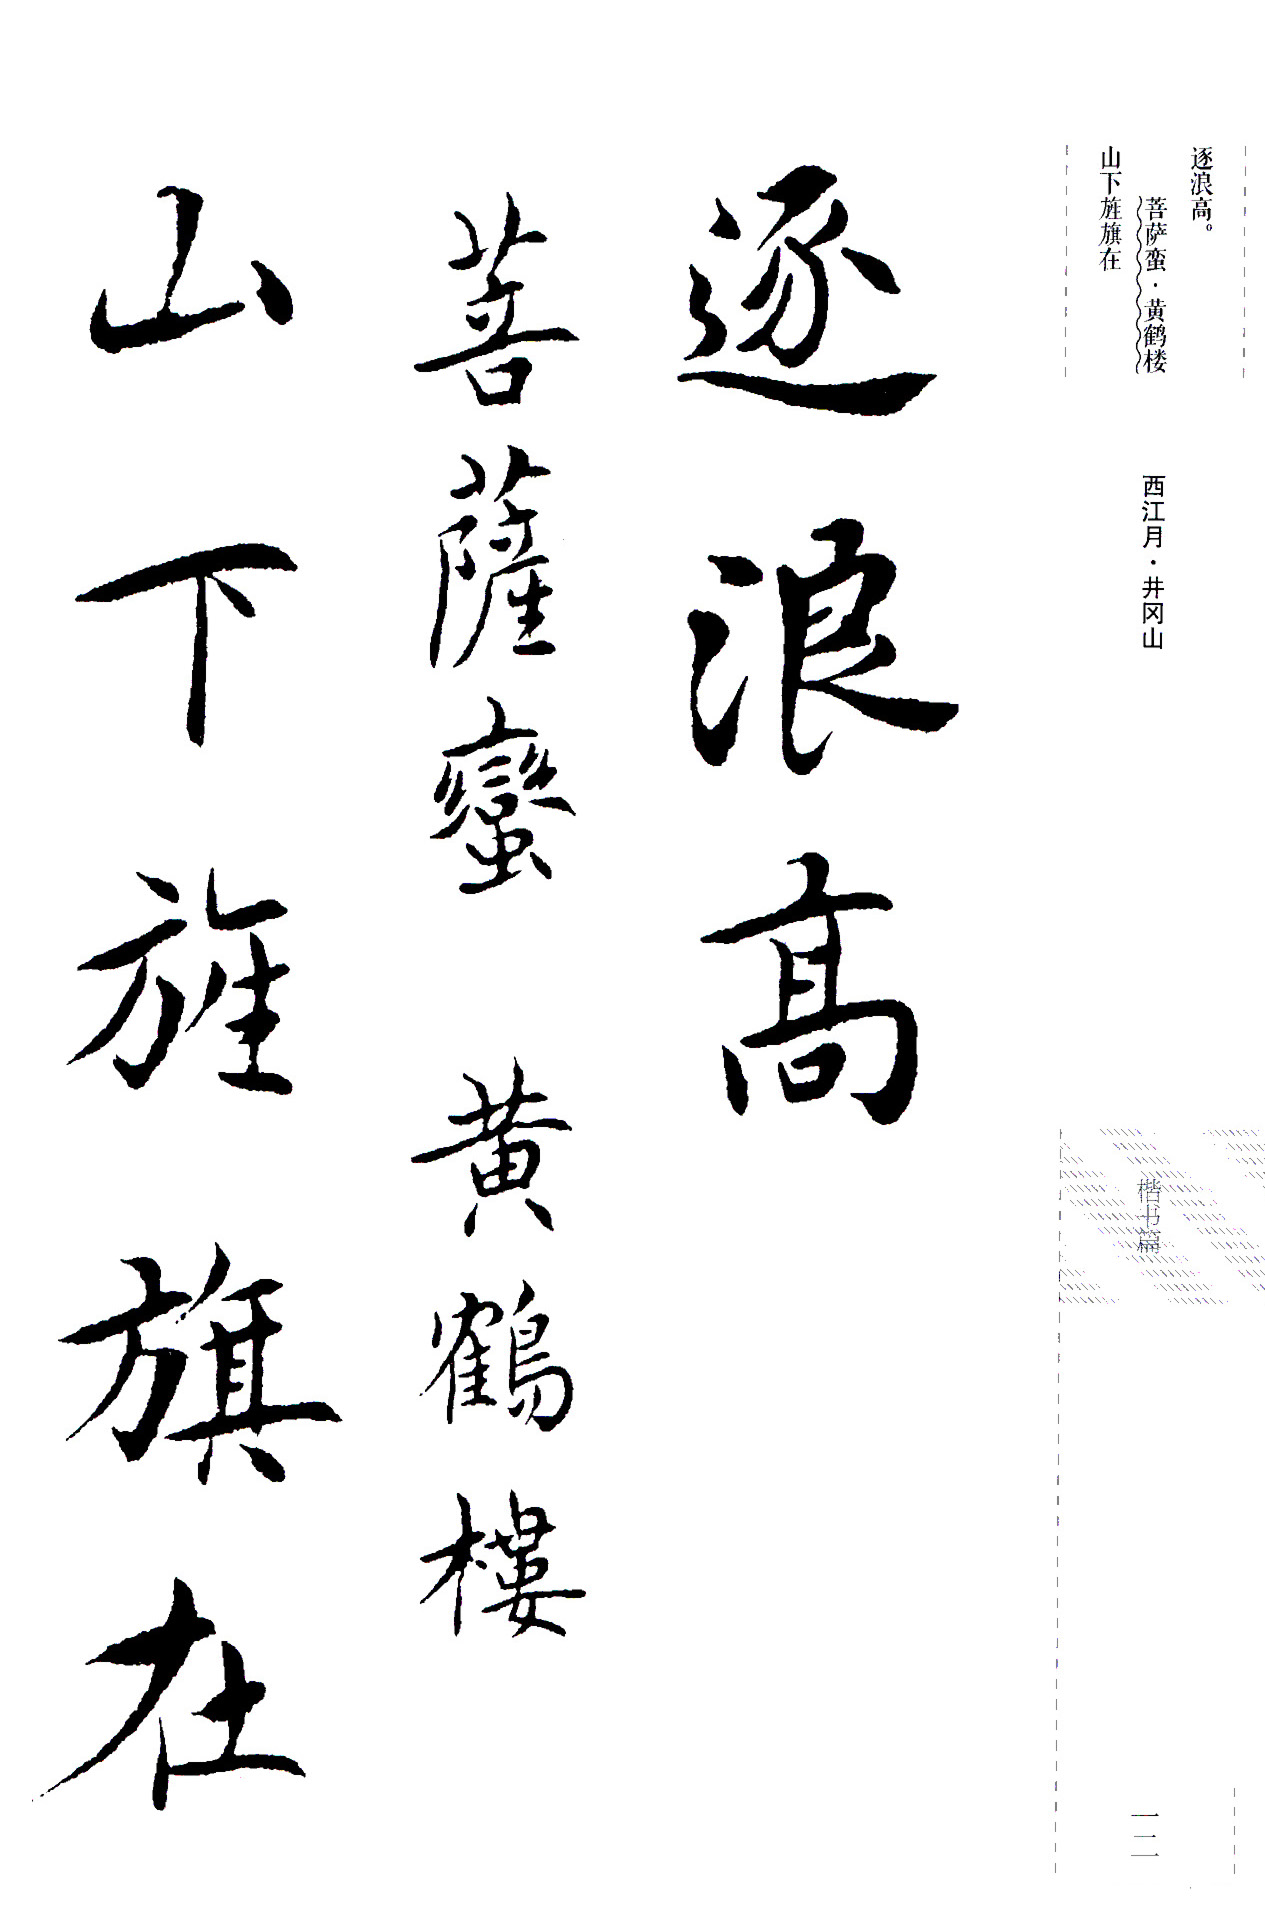 逐浪高。
菩萨蛮·黄鹤楼
山下旌旗在
西江月·井冈山
楷书篇
一二
逐浪高
菩薩蠻 黄鶴樓
山下旌旗在